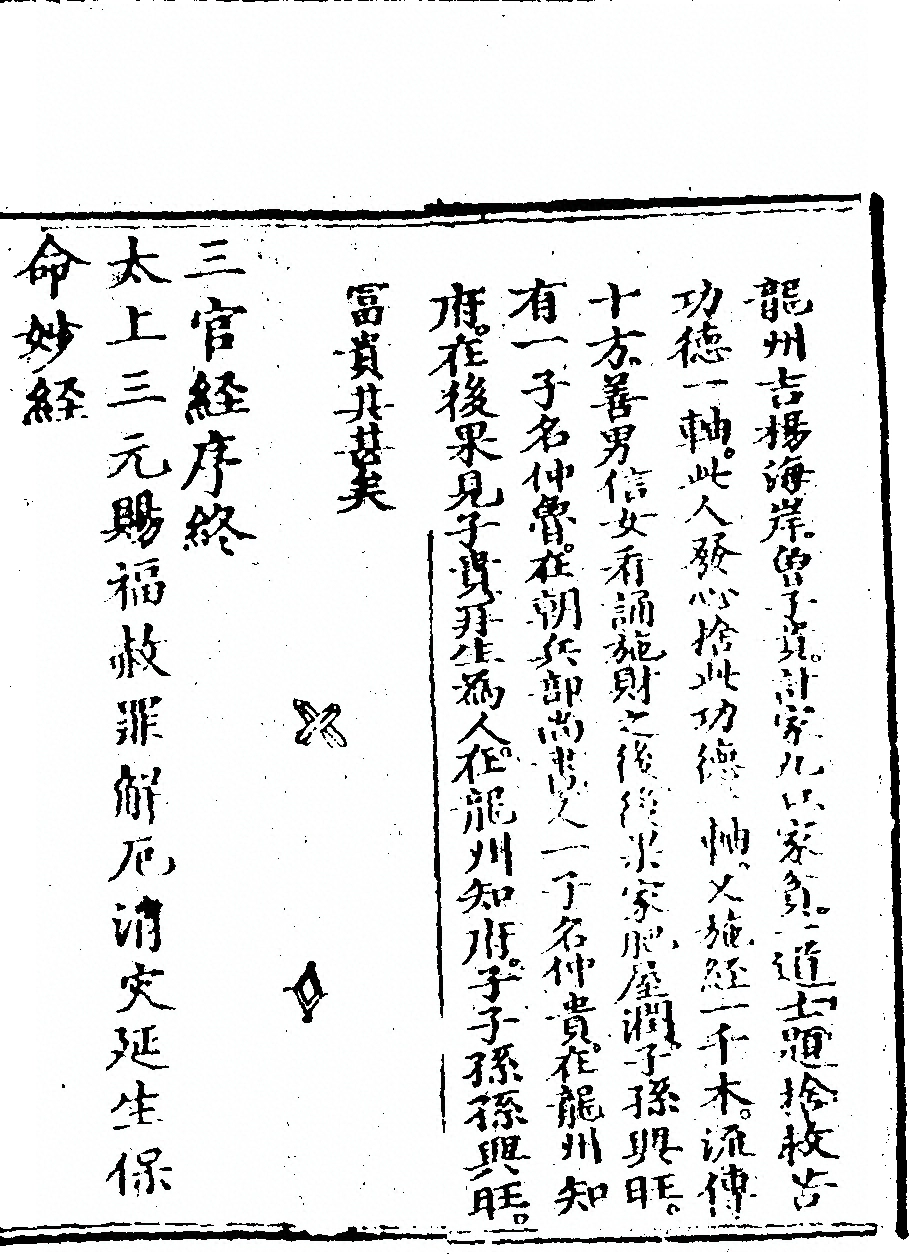 龍州吉楊海岸。曾子貢。計家九口家貧。一道士題捨救苦
功徳一軸。此人發心捨此功德一軸。又施經一千本。流傳
十方。善男信女看誦施財之後。後果家肥屋潤。子孫興旺。
有一子名仲魯。在朝兵部尚書。又一子名仲貴。在龍州知
府。在後果見子貢再生為人。在龍州知府。子子孫孫興旺。
冨貴共甚矣
三官経序終
太上三元賜福赦罪解厄消灾延生保
命妙経